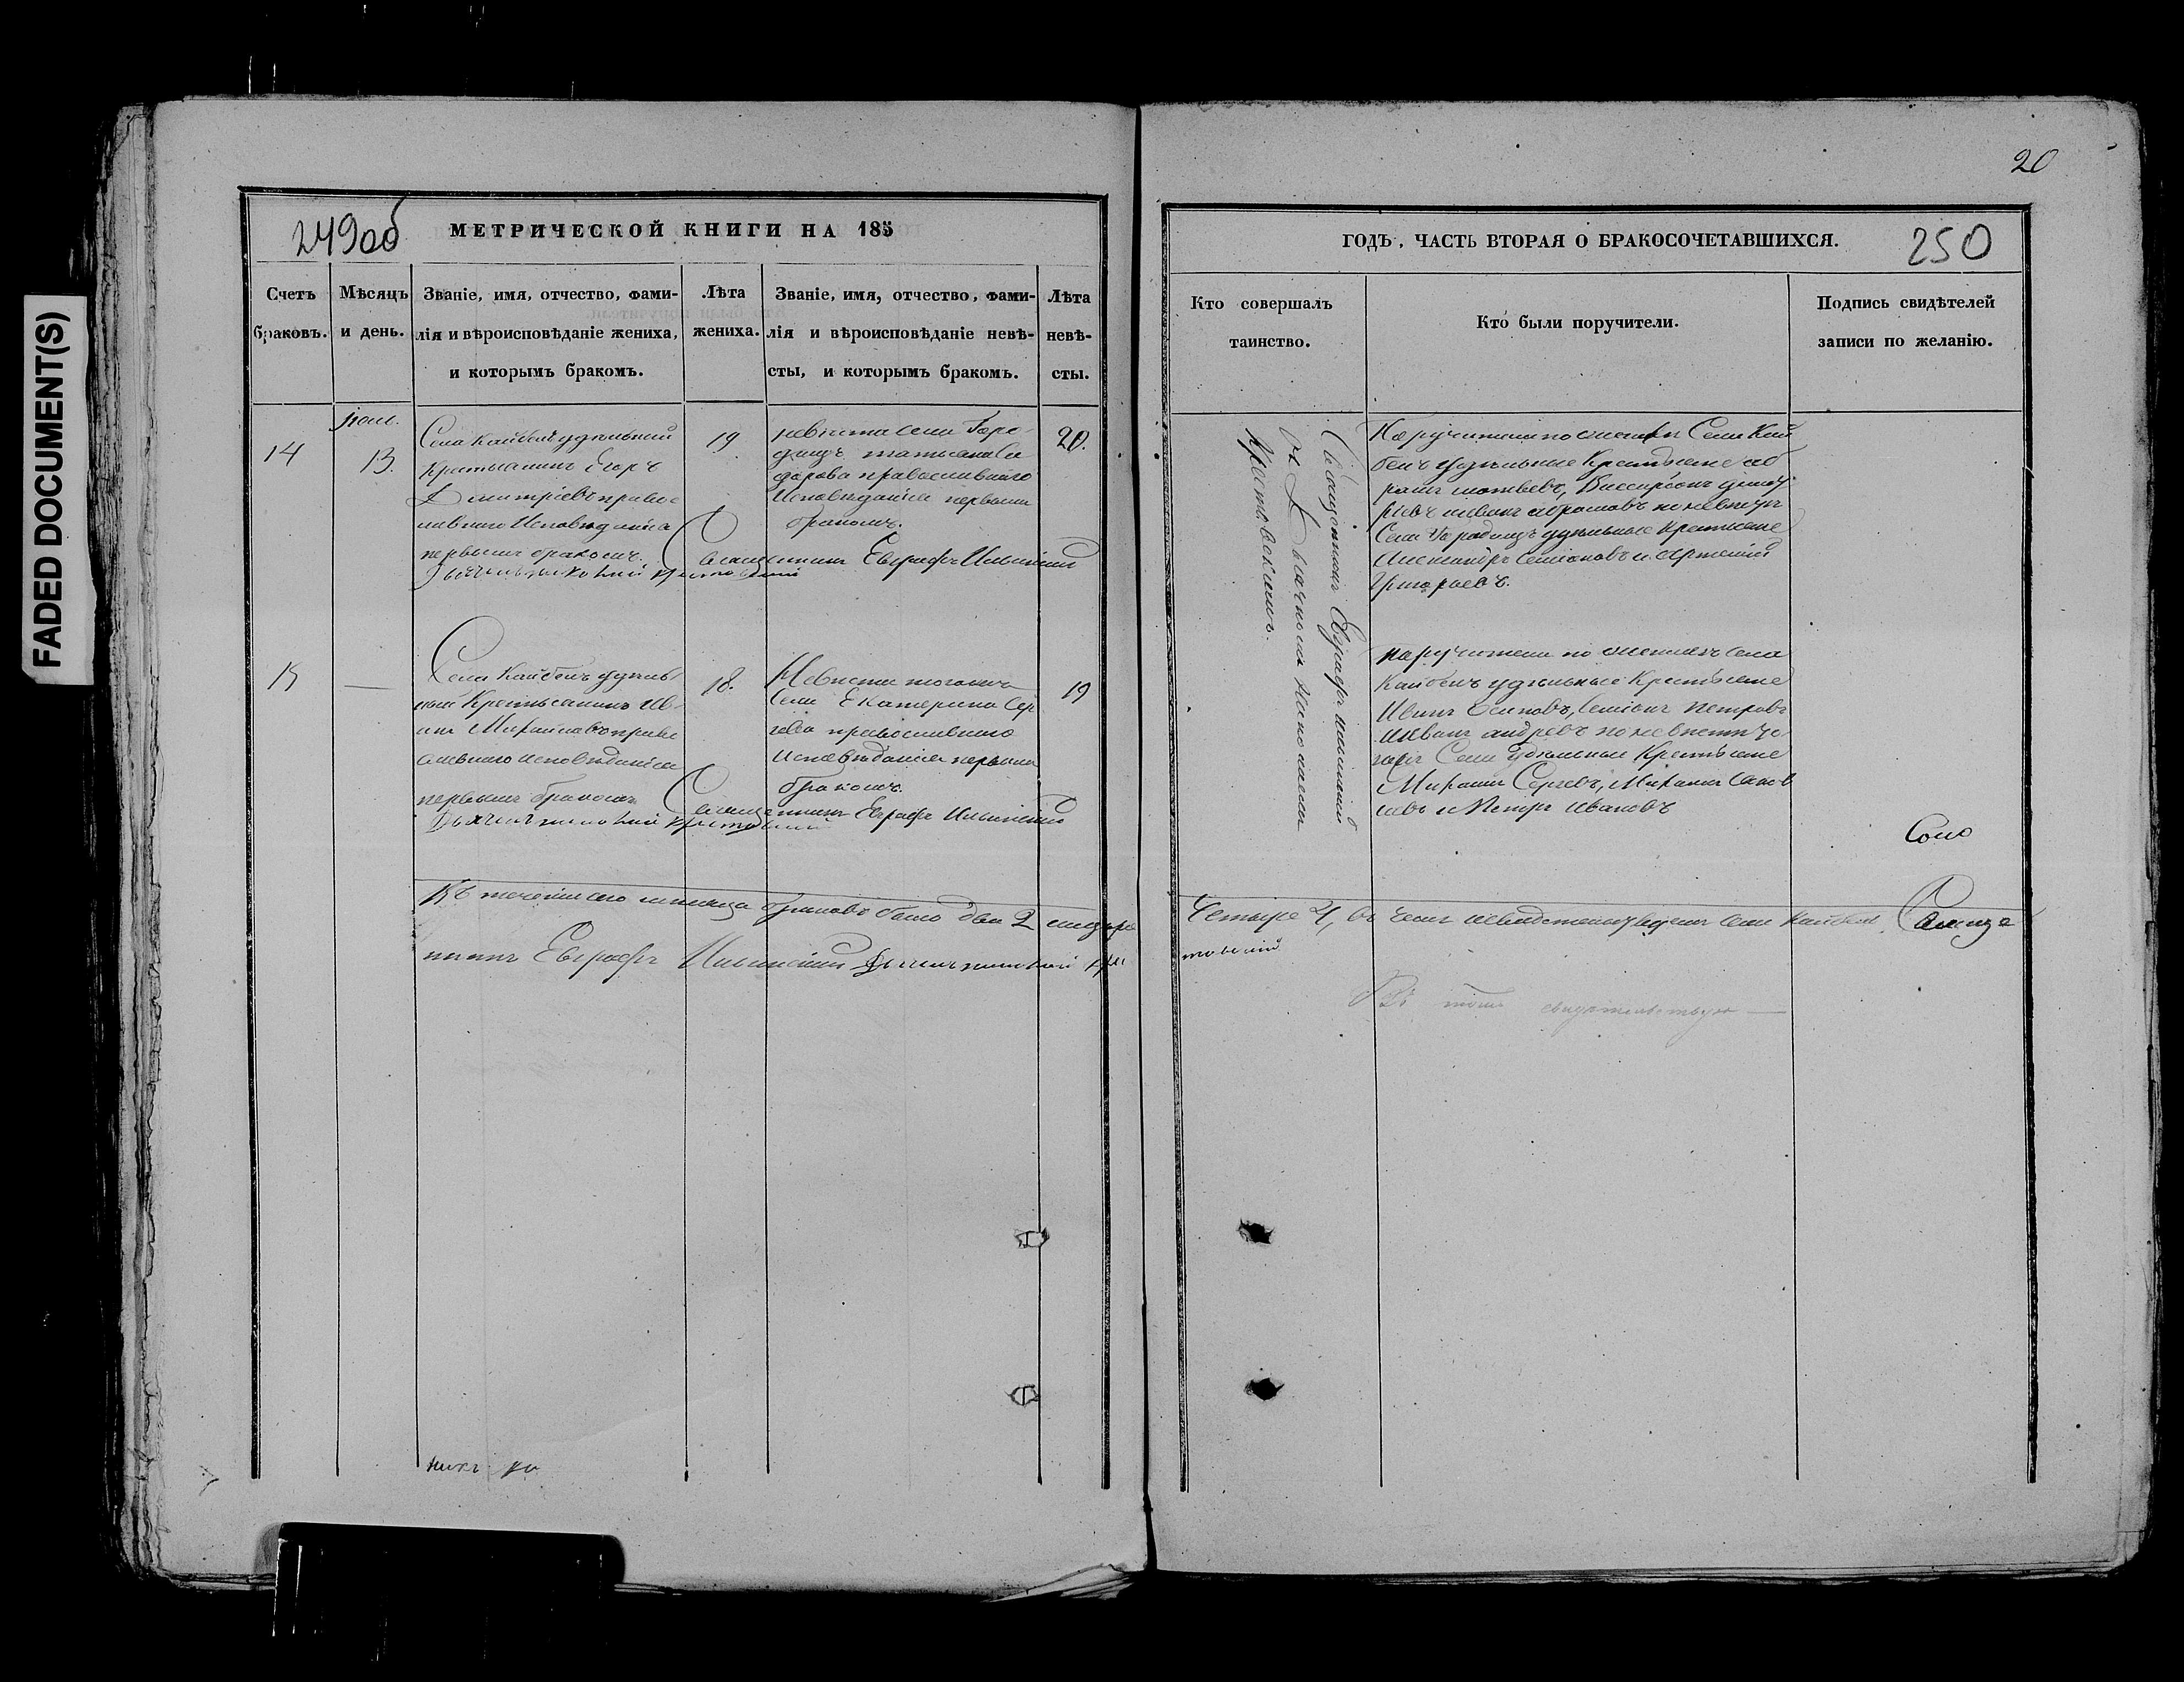 FADED DOCUMENT(S)
20
249об
МЕТРИЧЕСКОЙ КНИГИ НА 185
Счетъ браковъ.
Мѣсяцъ и день.
Званіе, имя, отчество, фами-
лія и вѣроисповѣданіе жениха,
и которымъ бракомъ.
Лѣта жениха.
Званіе, имя, отчество, фами-
лія и вѣроисповѣданіе невѣ-
сты, и которымъ бракомъ.
Лѣта
невѣ-
сты.
14
13.
Села Кайбелъ удѣльный
Крестьянинъ Егоръ
Димитріевъ право
славнаго Исповѣданія
первымъ бракомъ.
19
невѣста села Горо
дищъ
православнаго
Исповѣданія первымъ
бракомъ.
20.
Священникъ Евграфъ Ильинскій
15
—
Села Кайбелъ удѣль
ный Крестьянинъ Ив
анъ Михайловъ право
славнаго исповѣданія
первымъ бракомъ
18.
Невѣста тогожъ
Села Екатерина Сер
гѣева православнаго
Исповѣданія первымъ
бракомъ.
19
Священникъ Евграфъ Ильинскій
Въ теченіи сего мѣсяца браковъ было два 2 лицъ
никъ Евграфъ Ильинскій
ГОДЪ, ЧАСТЬ ВТОРАЯ О БРАКОСОЧЕТАВШИХСЯ.
250
Кто совершалъ
таинство.
Кто были поручители.
Подпись свидѣтелей
записи по желанію.
Священникъ Евграфъ Ильинскій
съ Дьячкомъ Николаемъ
Крестовскимъ.
Поручители по женихѣ Села Кай
белъ удѣльные Крестьяне аб
рамъ матвѣевъ,
иванъ абрамовъ по невѣстѣ
Села Городищъ удѣльные Крестьяне
Александръ Семіоновъ и
Григорьевъ.
поручители по женихѣ села
Кайбелъ удѣльные Крестьяне
Иванъ Осиповъ, Семіонъ Петровъ
Иванъ андрѣевъ по невѣстѣ то
гожъ Села Удѣльные Крестьяне
Михаилъ Сергѣевъ, Михаилъ
и Петръ Ивановъ
Четыре 4, въ чемъ
Села Кайбелъ Свяще
Въ томъ свидѣтельствую —